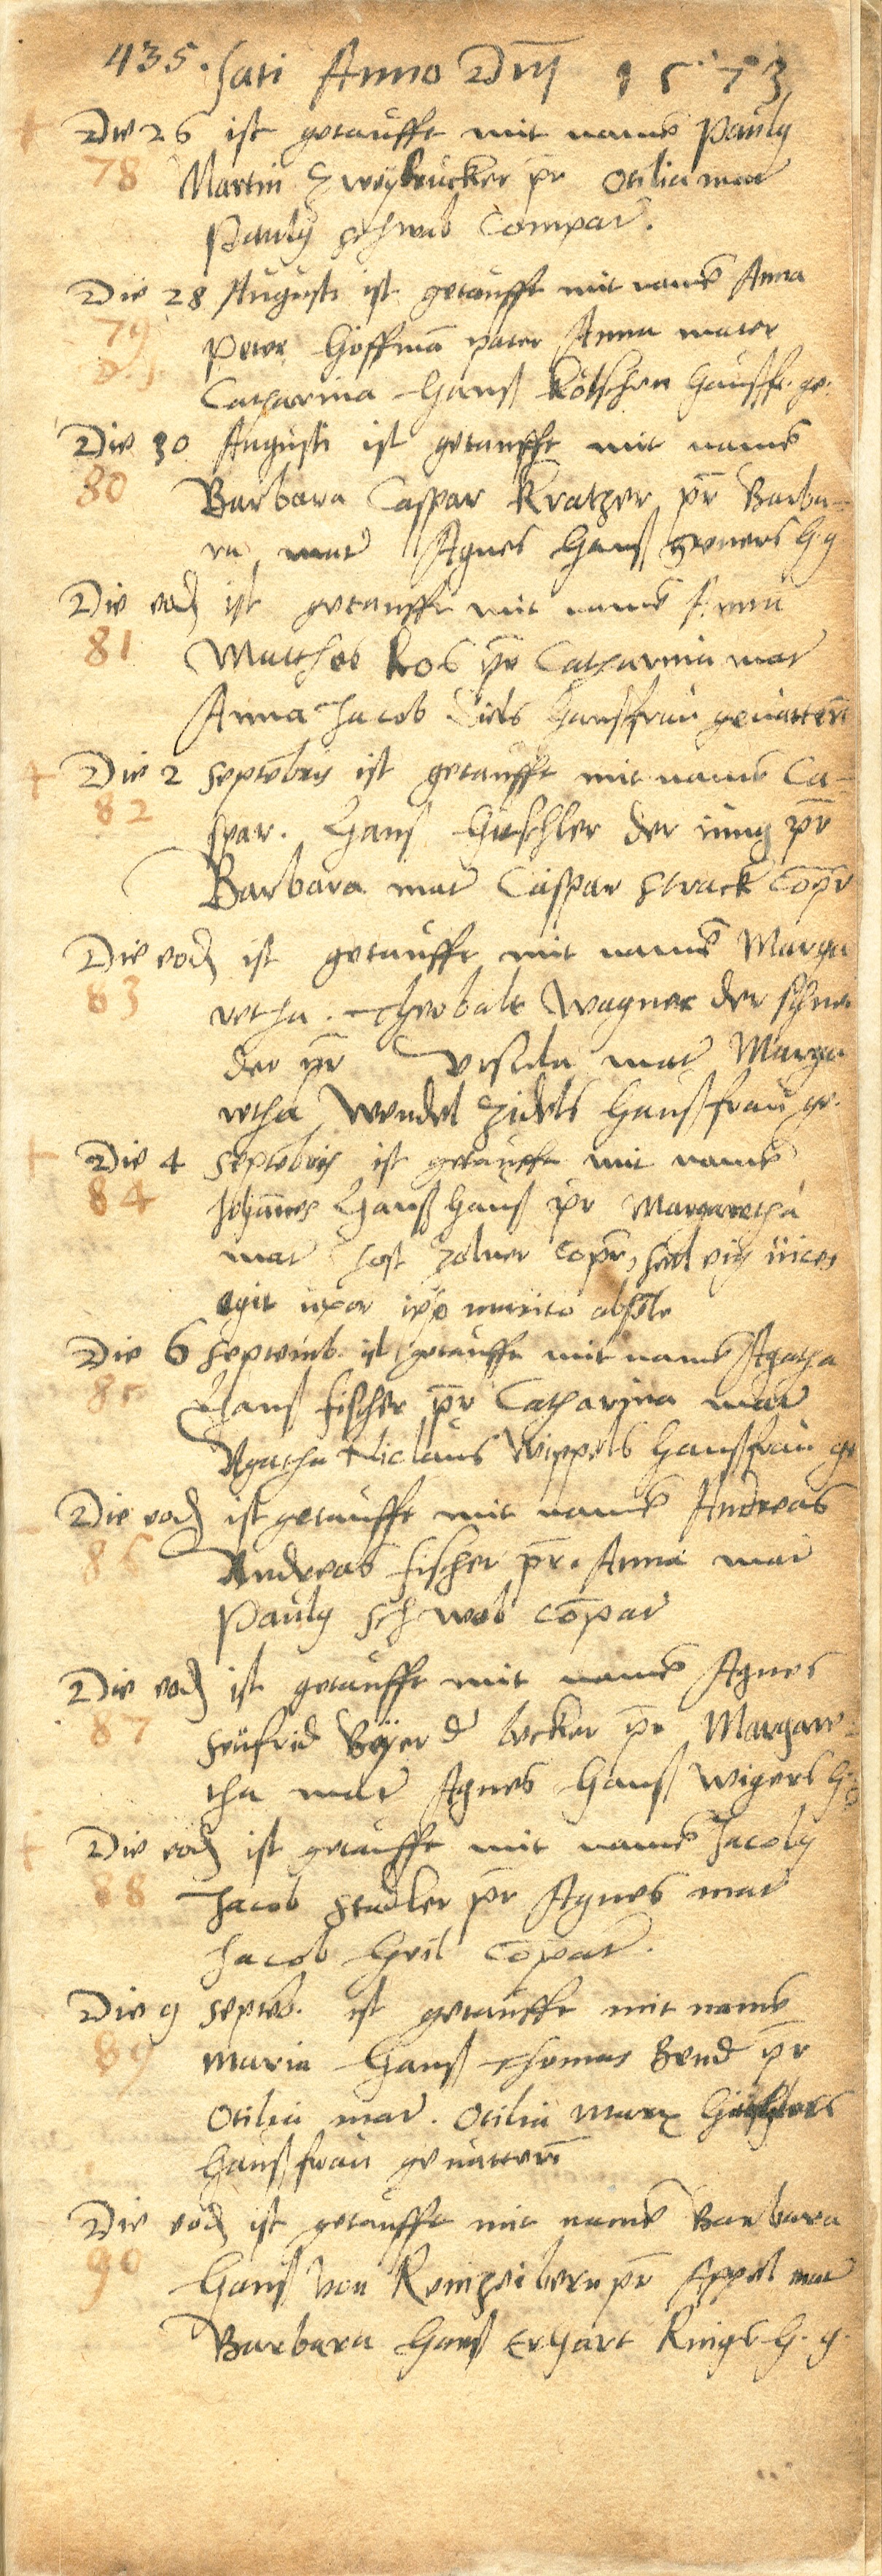 435. sati Anno Dm̄ 1573
Die 26 ist getaufft mit name Pauly
78 Martin Zweÿbrucker pr̄ Otilia mat
Pauly schwab Compar.
Die 28 Augusti ist getaufft mit name Anna
79 Peter Hoffmā pater Anna mater
Catharina Hanß Kölschen haußfr. ge.
Die 30 Augusti ist getaufft mit name
80 Barbara Caspar Kratzer pr̄ Barba-
ra mat Agnes Hanß H. g
Die eod ist getaufft mit name Anna
81 Matthes Kos pr̄ Catharina mat
Anna Jacob Diels haußfrau gevatterī
Die 2 septēbris ist getaufft mit name Ca-
82 spar. Hanß Hirschler der iung pr̄
Barbara mat Caspar strack cōpr
Die eod ist getaufft mit name Marga
83 retha. Theobalt Wagner der schnei
der pr̄ Ursula mat Marga
retha Wendel Zidels haußfrau ge.
Die 4 septēbris ist getaufft mit name
84 Johānes Hanß Hanß pr̄ Margaretha
mat Jost Zolner copr, sed eiꝰ vices
egit uxor ipō marito absēte
Die 6 septemb. ist getaufft mit name Agatha
85 Hanß fischer pr̄ Catharina mat
Agatha Niclaus Wippels haußfrau ge
Die eod ist getaufft mit name Andreas
86 Andreas fischer pr̄. Anna mat
Pauly schwob cōpar
Die eod ist getaufft mit name Agnes
87 seufrid Beÿer d becker pr̄ Margare-
tha mat Agnes Hanß Wigers H. g
Die eod ist getaufft mit name Jacob
88 Jacob stadler pr̄ Agnes mat
Jacob Heil cōpar.
Die 9 septēb. ist getaufft mit name
89 Maria Hanß Thomas Bend pr̄
Otilia mat. Otilia Marx
haußfrau gevatterī
Die eod ist getaufft mit name Barbara
90 Hanß von pr̄ Appel mat
Barbara Hanß Erhart Rings H. g.